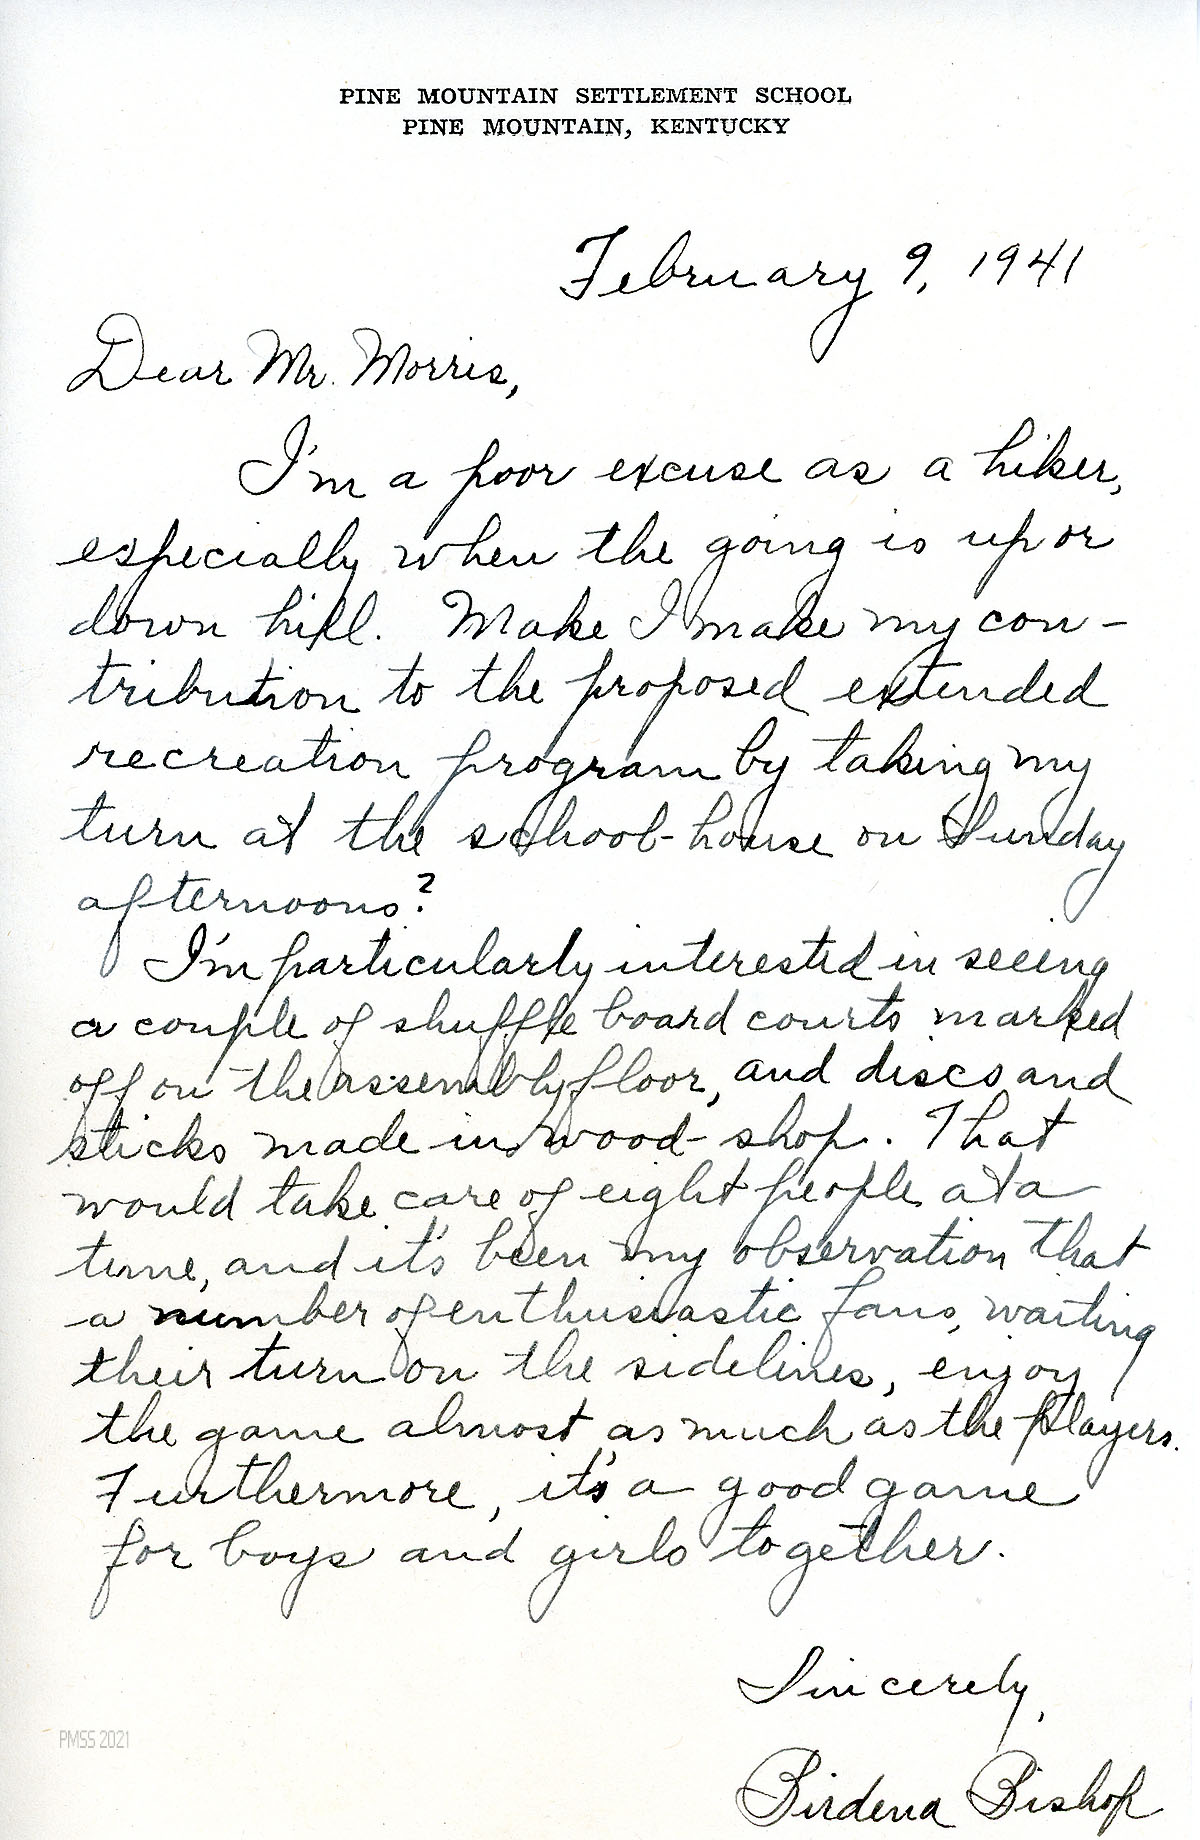 PINE MOUNTAIN SETTLEMENT SCHOOL
PINE MOUNTAIN, KENTUCKY
February 9, 1941
Dear Mr. Morris,
I'm a poor excuse as a hiker,
especially when the going is up or
down hill. Make I make my con-
tribution to the proposed extended
recreation program by taking my
turn at the school-house on Sunday
afternoons?
I'm particularly interested in seeing
a couple of shuffle board courts marked
off on the assembly floor, and discs and
sticks made in wood-shop. That
would take care of eight people at a
time, and it's been my observation that
a number of enthusiastic fans, waiting
their turn on the sidelines, enjoy
the game almost as much as the players.
Furthermore, it's a good game
for boys and girls together.
Sincerely,
Birdena Bishop
PMSS 2021